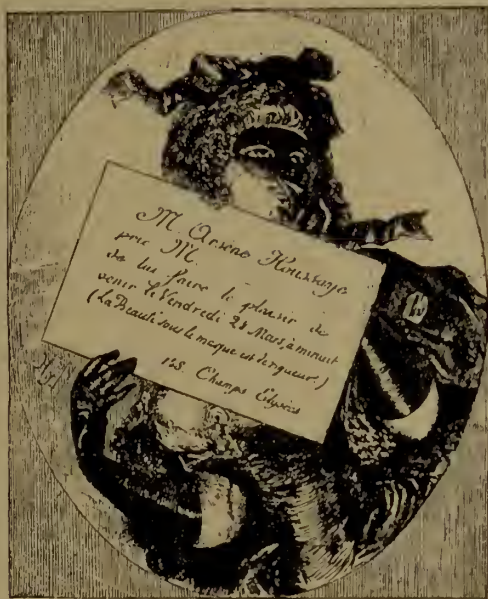 M. Arsène Houssaye
prie M.
de lui faire le plaisir de
venir le Vendredi 28 Mars à minuit
(La Beauté sous le masque est de rigueur.)
Champs Elysées